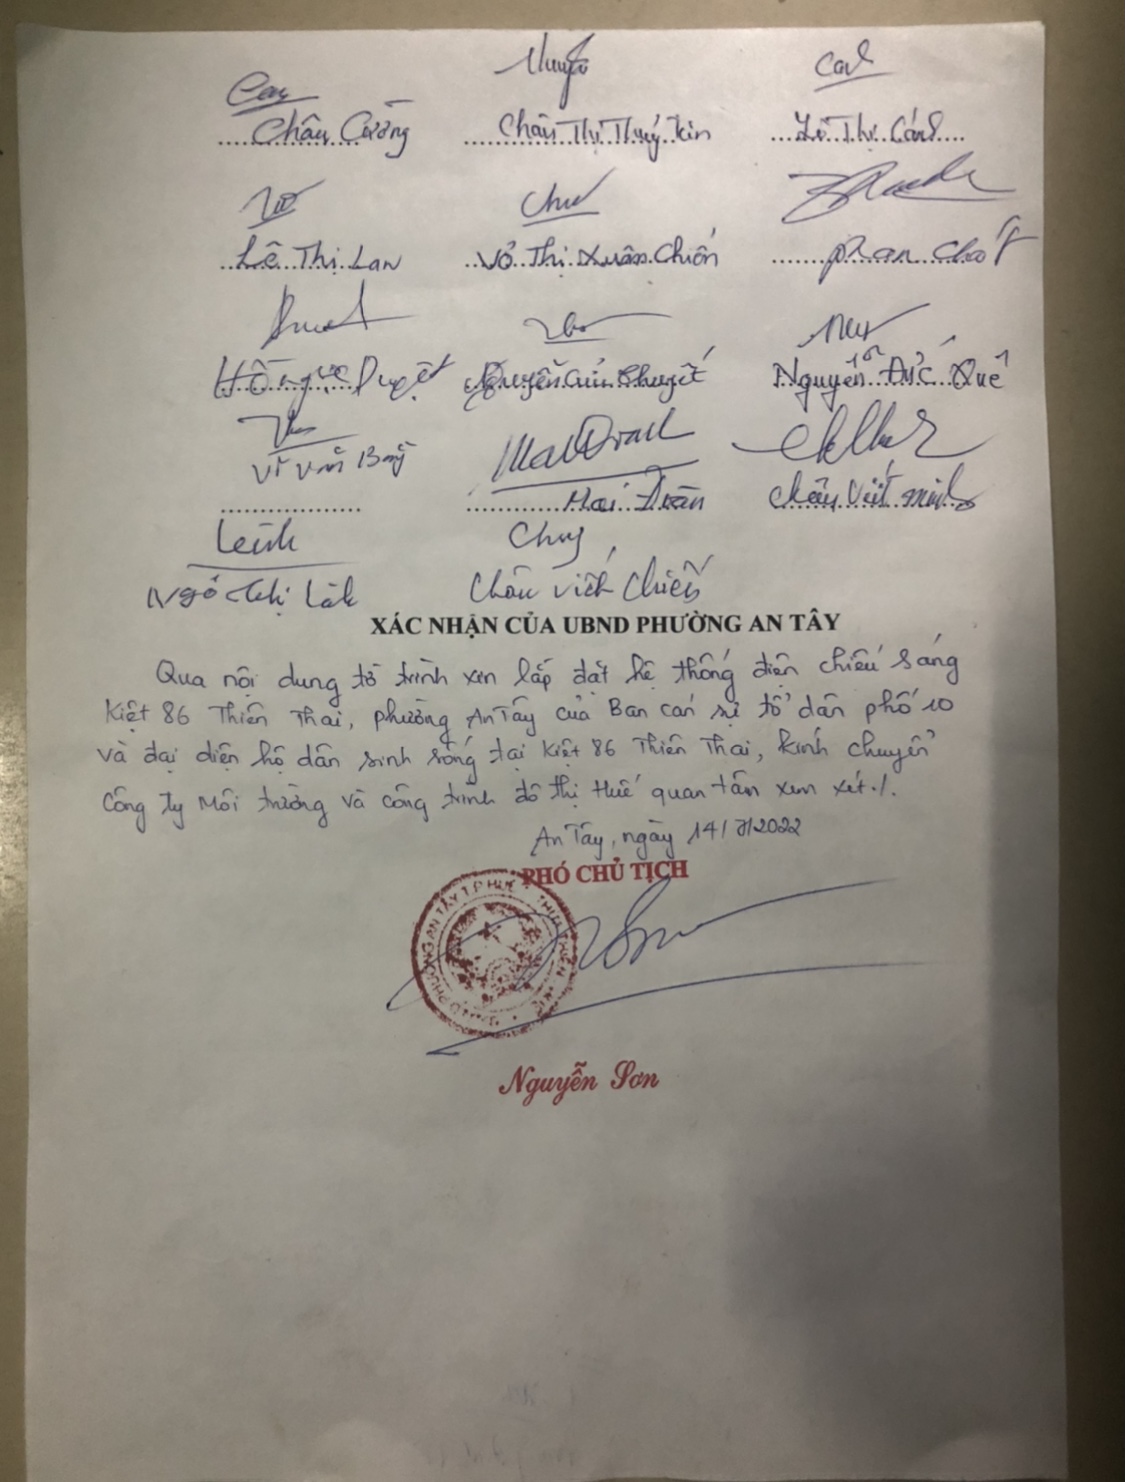 Châu Cường Châu Thị Thuý Kin Lê Thị Cánh
Lê Thị Lan Võ Thị Xuân Chiến Phan Chót
Hồ Ngọc Duyệt Nguyễn Thuyết Nguyễn Đức Quế
Văn Bảy Mai Đoàn Châu Viết Minh
Ngô Thị Lành Châu Viết Chiến
XÁC NHẬN CỦA UBND PHƯỜNG AN TÂY
Qua nội dung tờ trình xin lắp đặt hệ thống điện chiếu sáng
Kiệt 86 Thiên Thai, phường An Tây của Ban cán sự tổ dân phố 10
và đại diện hộ dân sinh sống tại Kiệt 86 Thiên Thai, kính chuyển
Công ty Môi trường và công trình đô thị Huế quan tâm xem xét./.
An Tây, ngày 14/7/2022
PHÓ CHỦ TỊCH
Nguyễn Sơn